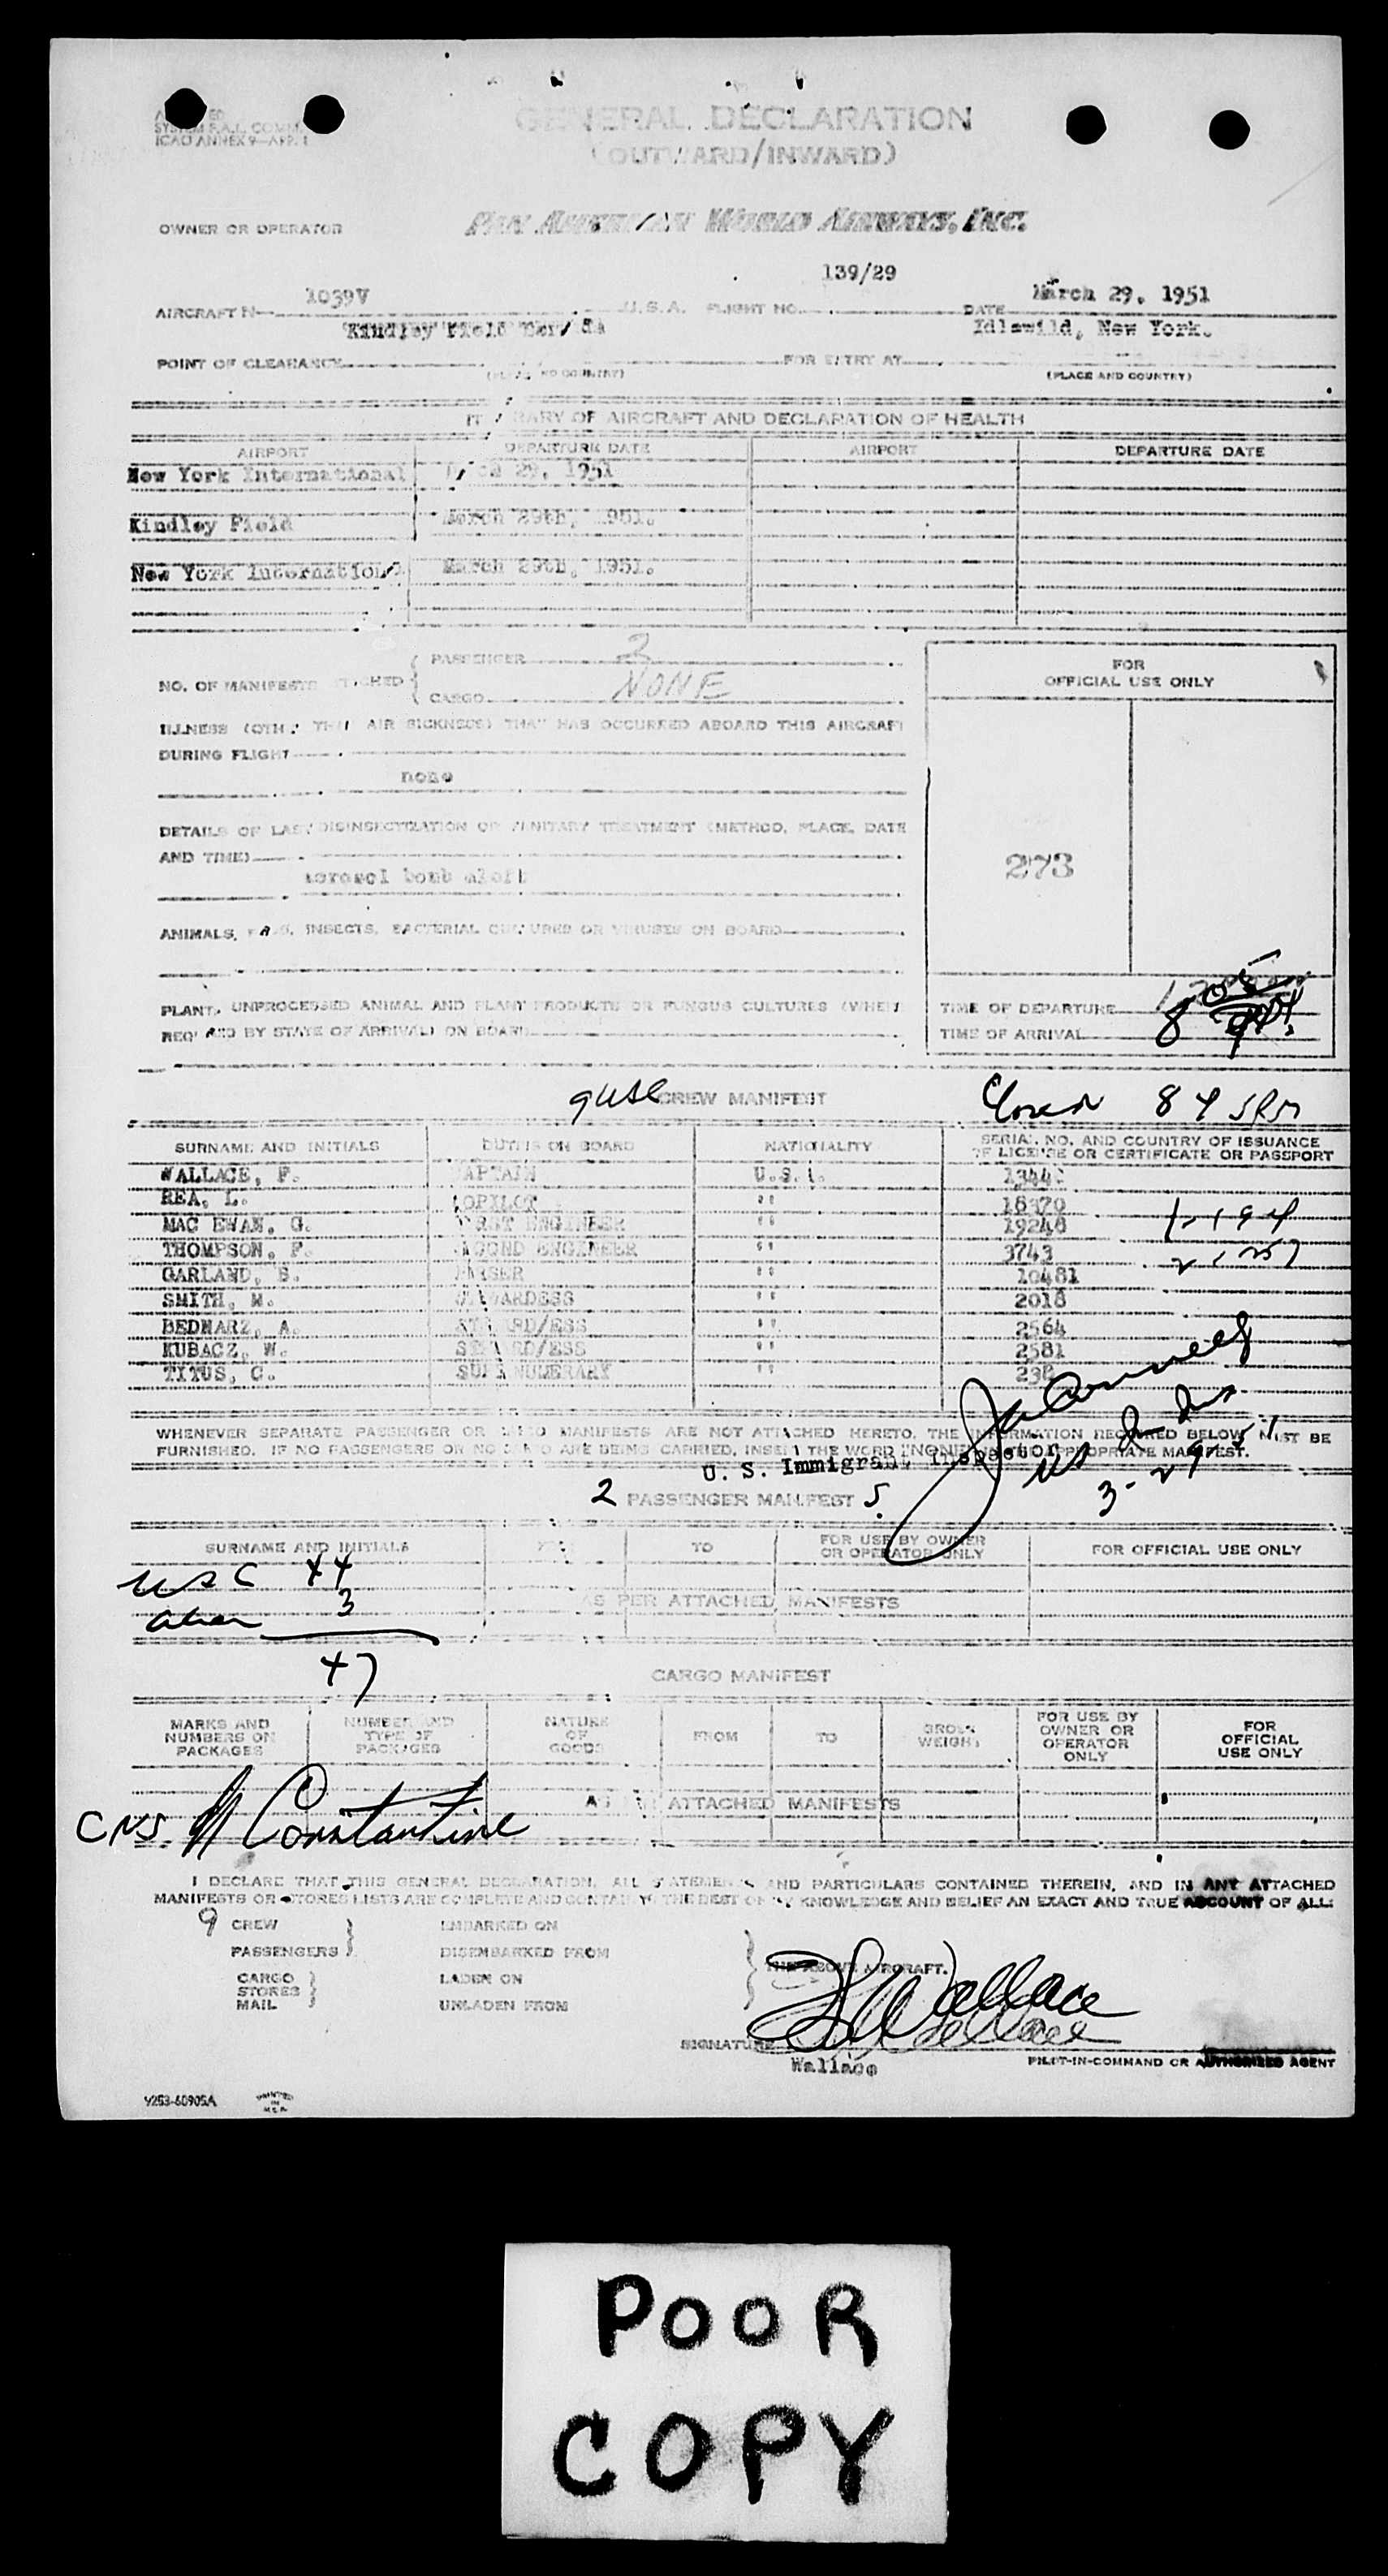 GENERAL DECLARATION
(OUTWARD/INWARD)
ICAO ANNEX 9—APP. 1
OWNER OR OPERATOR PAN AMERICAN WORLD AIRWAYS, INC.
139/29
AIRCRAFT N— 1039V U.S.A. FLIGHT NO. DATE March 29, 1951
Kindley Field Idlewild, New York.
POINT OF CLEARANCE FOR ENTRY AT
(PLACE AND COUNTRY)
OF AIRCRAFT AND DECLARATION OF HEALTH
AIRPORT DEPARTURE DATE AIRPORT DEPARTURE DATE
New York International 29, 1951
Kindley Field March 29th, 1951.
New York International March 29th, 1951.
NO. OF MANIFESTS ATTACHED { PASSENGER 2
CARGO NONE
FOR
OFFICIAL USE ONLY
ILLNESS (OTHER THAN AIR SICKNESS) THAT HAS OCCURRED ABOARD THIS AIRCRAFT
DURING FLIGHT
none
DETAILS OF LAST DISINSECTIZATION OR SANITARY TREATMENT (METHOD, PLACE, DATE
AND TIME)
aerosol bomb aloft
273
ANIMALS, INSECTS, BACTERIAL CULTURES OR VIRUSES ON BOARD
PLANT, UNPROCESSED ANIMAL AND PLANT PRODUCTS OR FUNGUS CULTURES (WHEN
REQUIRED BY STATE OF ARRIVAL) ON BOARD
TIME OF DEPARTURE
TIME OF ARRIVAL
CREW MANIFEST
SURNAME AND INITIALS DUTIES ON BOARD NATIONALITY SERIAL NO. AND COUNTRY OF ISSUANCE
OF LICENSE OR CERTIFICATE OR PASSPORT
WALLACE, F. CAPTAIN U.S.A.
REA, L. COPILOT " 18370
MAC EWAN, G. FIRST ENGINEER " 19248
THOMPSON, F. SECOND ENGINEER " 3743
GARLAND, B. PURSER " 10481
SMITH, M. STEWARDESS " 2018
BEDNARZ, A. STEWARD/ESS " 2564
KUBACZ, W. STEWARD/ESS " 2581
TITUS, C. SUPERNUMERARY "
WHENEVER SEPARATE PASSENGER OR CARGO MANIFESTS ARE NOT ATTACHED HERETO, THE INFORMATION REQUIRED BELOW MUST BE
FURNISHED. IF NO PASSENGERS OR NO CARGO ARE BEING CARRIED, INSERT THE WORD "NONE" APPROPRIATE MANIFEST.
U. S. Immigrant Inspector
3-29-51
2 PASSENGER MANIFEST S
SURNAME AND INITIALS TO FOR USE BY OWNER
OR OPERATOR ONLY FOR OFFICIAL USE ONLY
USC 44
Alien 3
AS PER ATTACHED MANIFESTS
47
CARGO MANIFEST
MARKS AND
NUMBERS ON
PACKAGES
NUMBER AND
TYPE OF
PACKAGES
NATURE
OF
GOODS
FROM
TO
GROSS
WEIGHT
FOR USE BY
OWNER OR
OPERATOR
ONLY
FOR
OFFICIAL
USE ONLY
ATTACHED MANIFESTS
Constantine
I DECLARE THAT THIS GENERAL DECLARATION, ALL STATEMENTS AND PARTICULARS CONTAINED THEREIN, AND IN ANY ATTACHED
MANIFESTS OR STORES LISTS ARE COMPLETE AND CONTAIN TO THE BEST OF MY KNOWLEDGE AND BELIEF AN EXACT AND TRUE ACCOUNT OF ALL:
9 CREW EMBARKED ON
PASSENGERS DISEMBARKED FROM
CARGO LADEN ON
STORES
MAIL UNLADEN FROM
THE ABOVE AIRCRAFT.
Wallace
SIGNATURE
Wallace PILOT-IN-COMMAND OR AUTHORIZED AGENT
PRINTED
IN
POOR
COPY